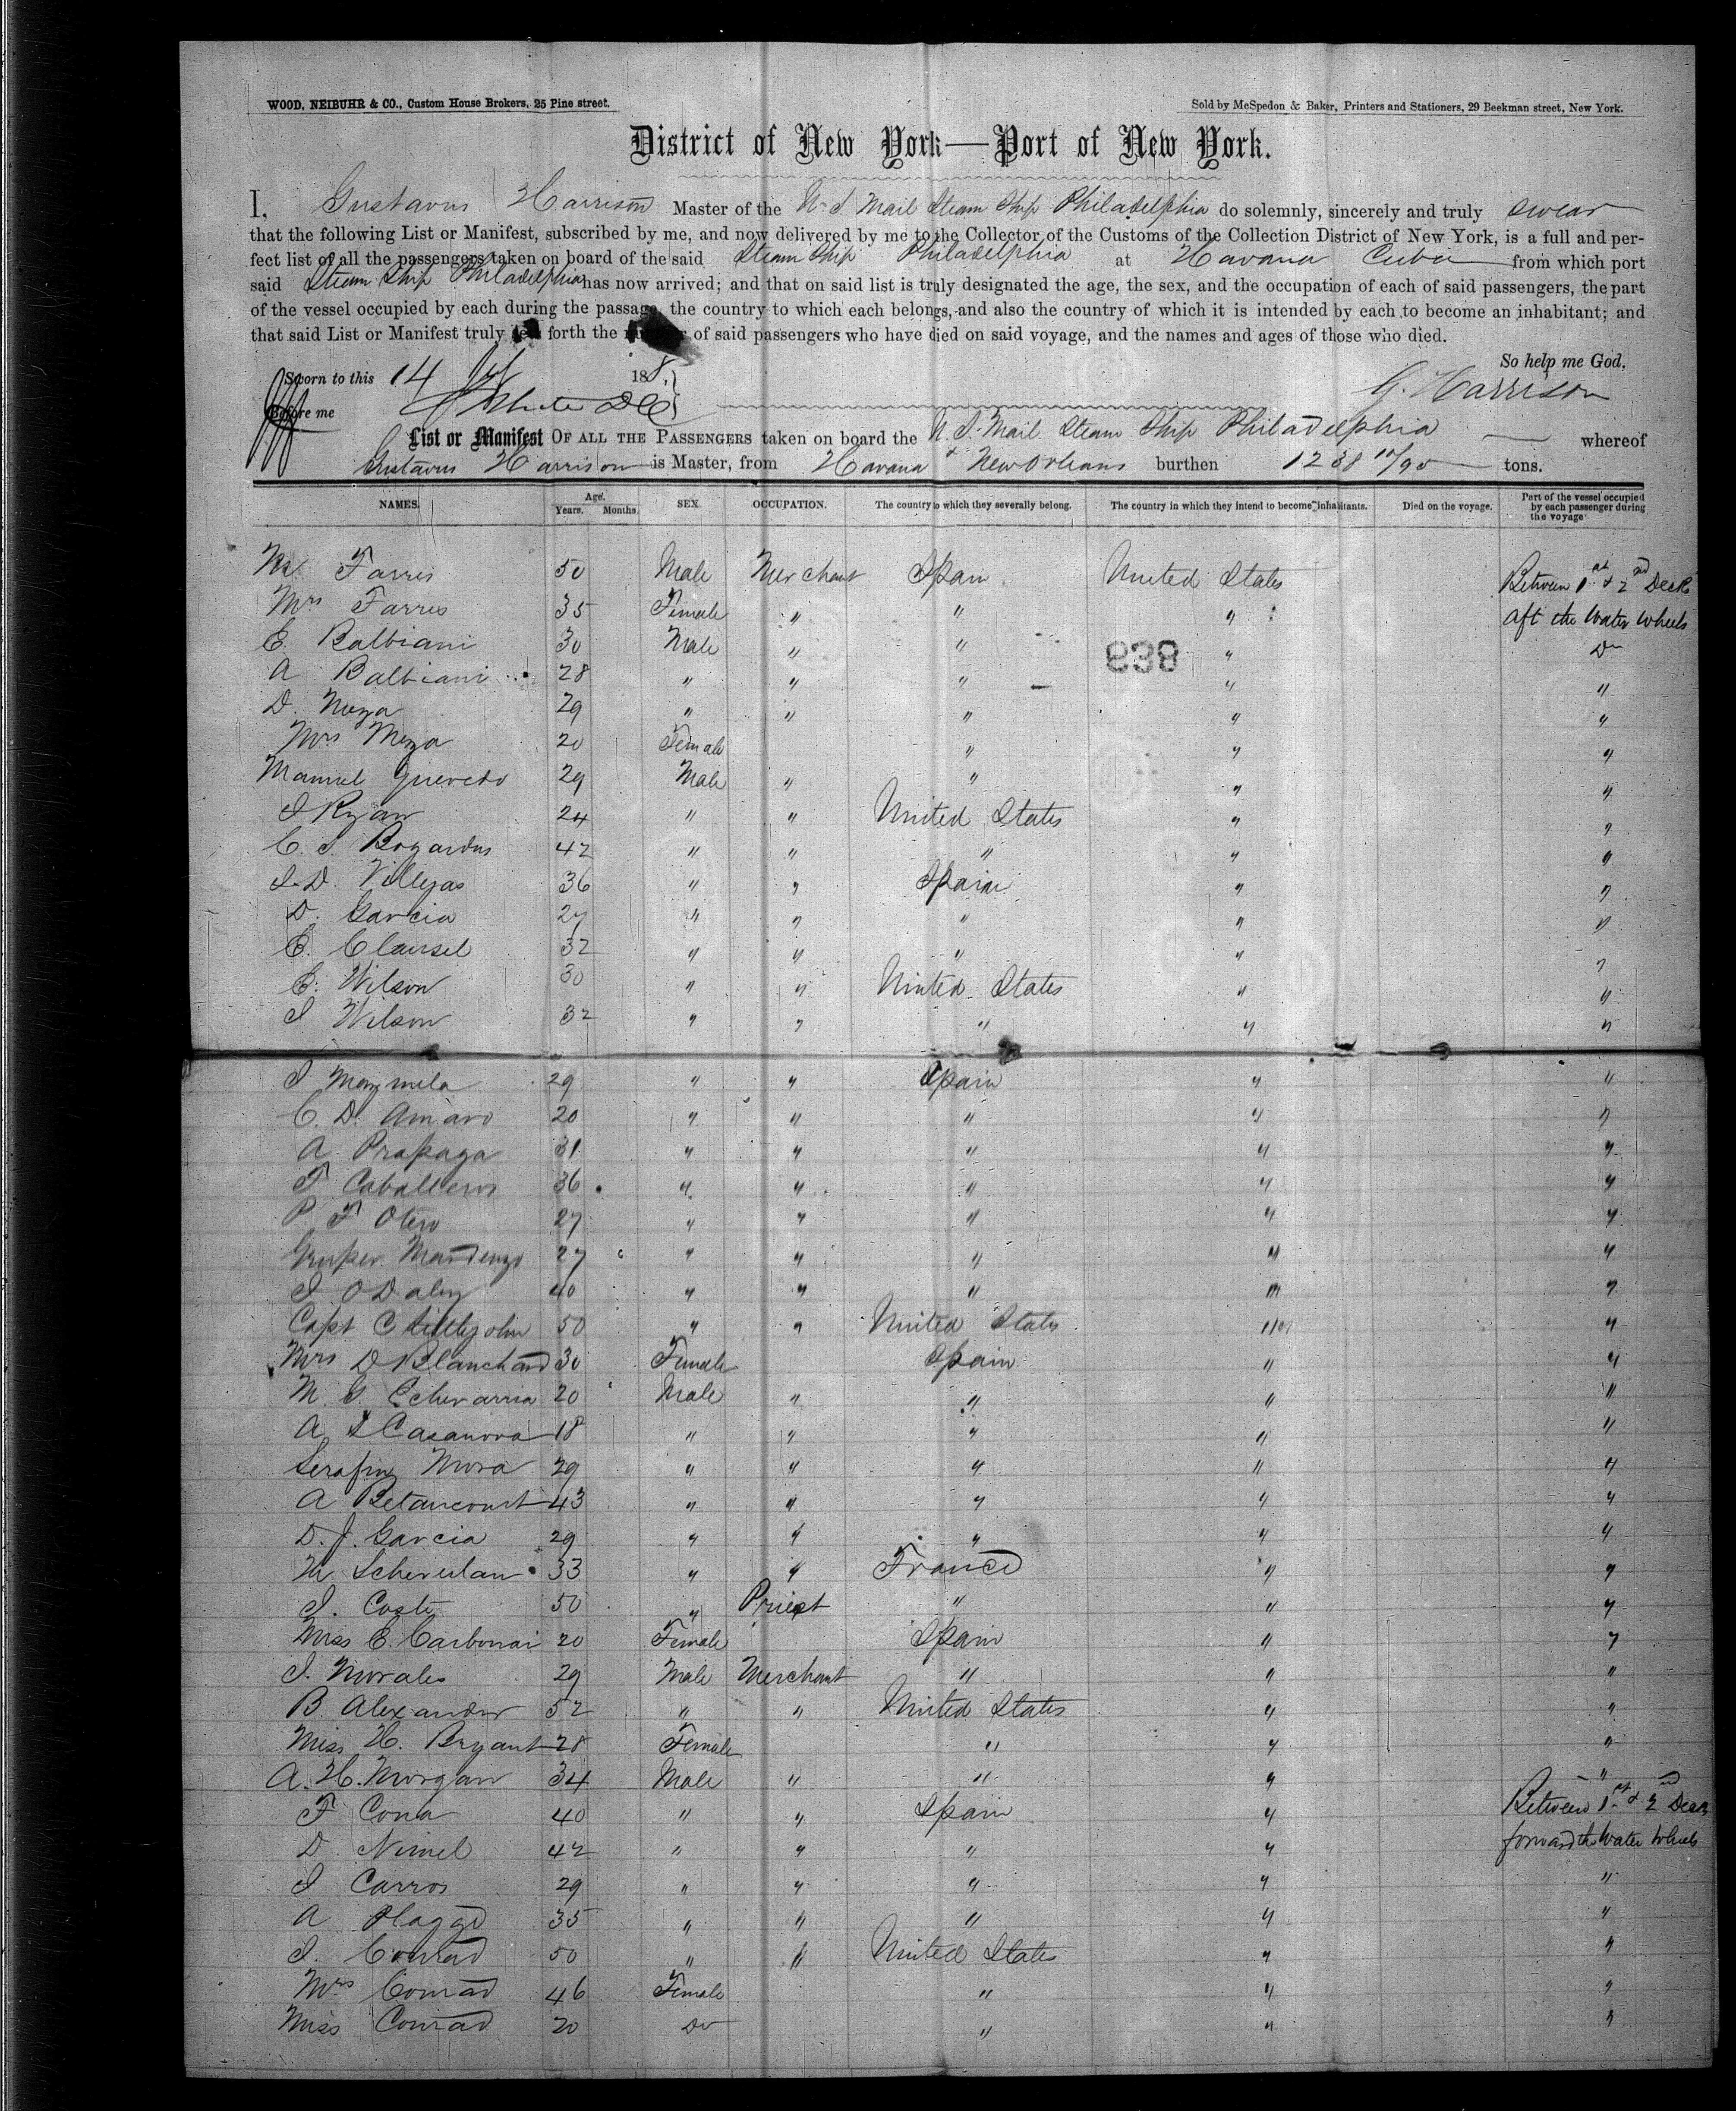 WOOD, NEIBUHR & CO., Custom House Brokers, 25 Pine street.
Sold by McSpedon & Baker, Printers and Stationers, 29 Beekman street, New York.
District of New York—Port of New York.
I, Gustavus Harrison Master of the U.S Mail Steam Ship Philadelphia do solemnly, sincerely and truly swear
that the following List or Manifest, subscribed by me, and now delivered by me to the Collector of the Customs of the Collection District of New York, is a full and per-
fect list of all the passengers taken on board of the said Steam Ship Philadelphia at Havana Cuba from which port
said Steam Ship Philadelphia has now arrived; and that on said list is truly designated the age, the sex, and the occupation of each of said passengers, the part
of the vessel occupied by each during the passage, the country to which each belongs, and also the country of which it is intended by each to become an inhabitant; and
that said List or Manifest truly sets forth the number of said passengers who have died on said voyage, and the names and ages of those who died.
So help me God.
Sworn to this 14 185
G. Harrison
Before me
List or Manifest OF ALL THE PASSENGERS taken on board the U.S. Mail Steam Ship Philadelphia whereof
Gustavus Harrison is Master, from Havana & New Orleans burthen 1238 tons.
NAMES. Age. Years. Months. SEX. OCCUPATION. The country to which they severally belong. The country in which they intend to become inhabitants. Died on the voyage. Part of the vessel occupied by each passenger during the voyage
Mr Farris 50 Male Merchant Spain United States Between 1st & 2nd Deck
Mrs Farris 35 Female " " " aft the Water Wheels
E. Balbiani 30 Male " " " Do
838
A Balbiani 28 " " " " "
D. Meza 29 " " " " "
Mrs Meza 20 Female " " "
Manuel Quevedo 29 Male " " " "
J Ryan 24 " " United States " "
C. S. Bogardus 42 " " " " "
J. D. Villegas 36 " " Spain " "
D. Garcia 27 " " " " "
C. Clausel 32 " " " " "
C. Wilson 30 " " United States " "
J Wilson 32 " " " " "
J 29 " " Spain " "
C. D. Amaro 20 " " " " "
A. Prapaga 31 " " " " "
F Caballeros 36 " " " " "
P F Otero 27 " " " " "
27 " " " " "
J O Daly 40 " " " " "
Capt C Littlejohn 50 " " United States " "
Mrs D Blanchard 30 Female Spain " "
M. G. Echevarria 20 Male " " " "
A. L Casanova 18 " " " " "
Serafin Mora 29 " " " " "
A Betancourt 43 " " " " "
D. J. Garcia 29 " " " " "
M 33 " " France " "
J. Coste 50 " Priest " " "
Miss E. Carbonai 20 Female Spain " "
J. Morales 29 Male Merchant " " "
B. Alexander 52 " " United States " "
Miss H. Bryant 28 Female " " "
A. H. Morgan 34 Male " " " "
F Cona 40 " " Spain " Between 1st & 2nd Deck
D. Nimel 42 " " " " forward the Water Wheels
J Carros 29 " " " " "
A Plaggo 35 " " " " "
J. Conrad 50 " " United States " "
Mrs Conrad 46 Female " " "
Miss Conrad 20 Do " " "